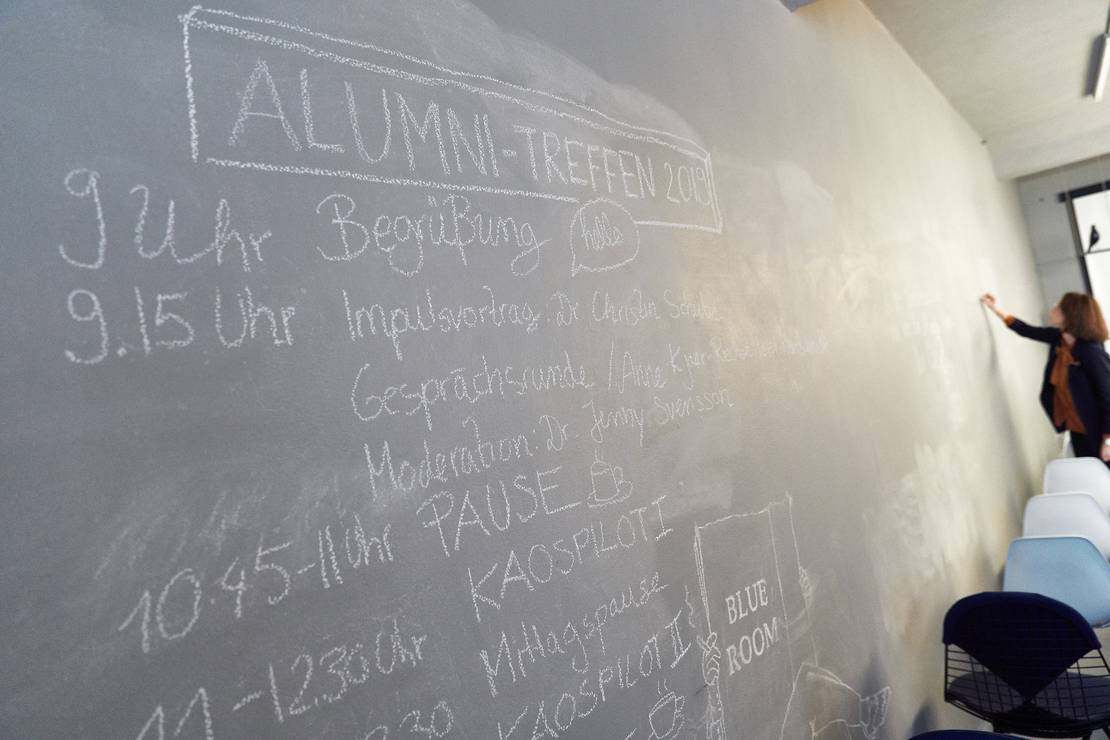 ALUMNI-TREFFEN 2019
9 Uhr Begrüßung hello
9.15 Uhr Impulsvortrag: Dr. Christian
Gesprächsrunde / Anne
Moderation: Dr. Jenny Svensson
10.45-11 Uhr PAUSE
11-12.30 Uhr KAOSPILOT I
Mittagspause
KAOSPILOT II
BLUE
ROOM